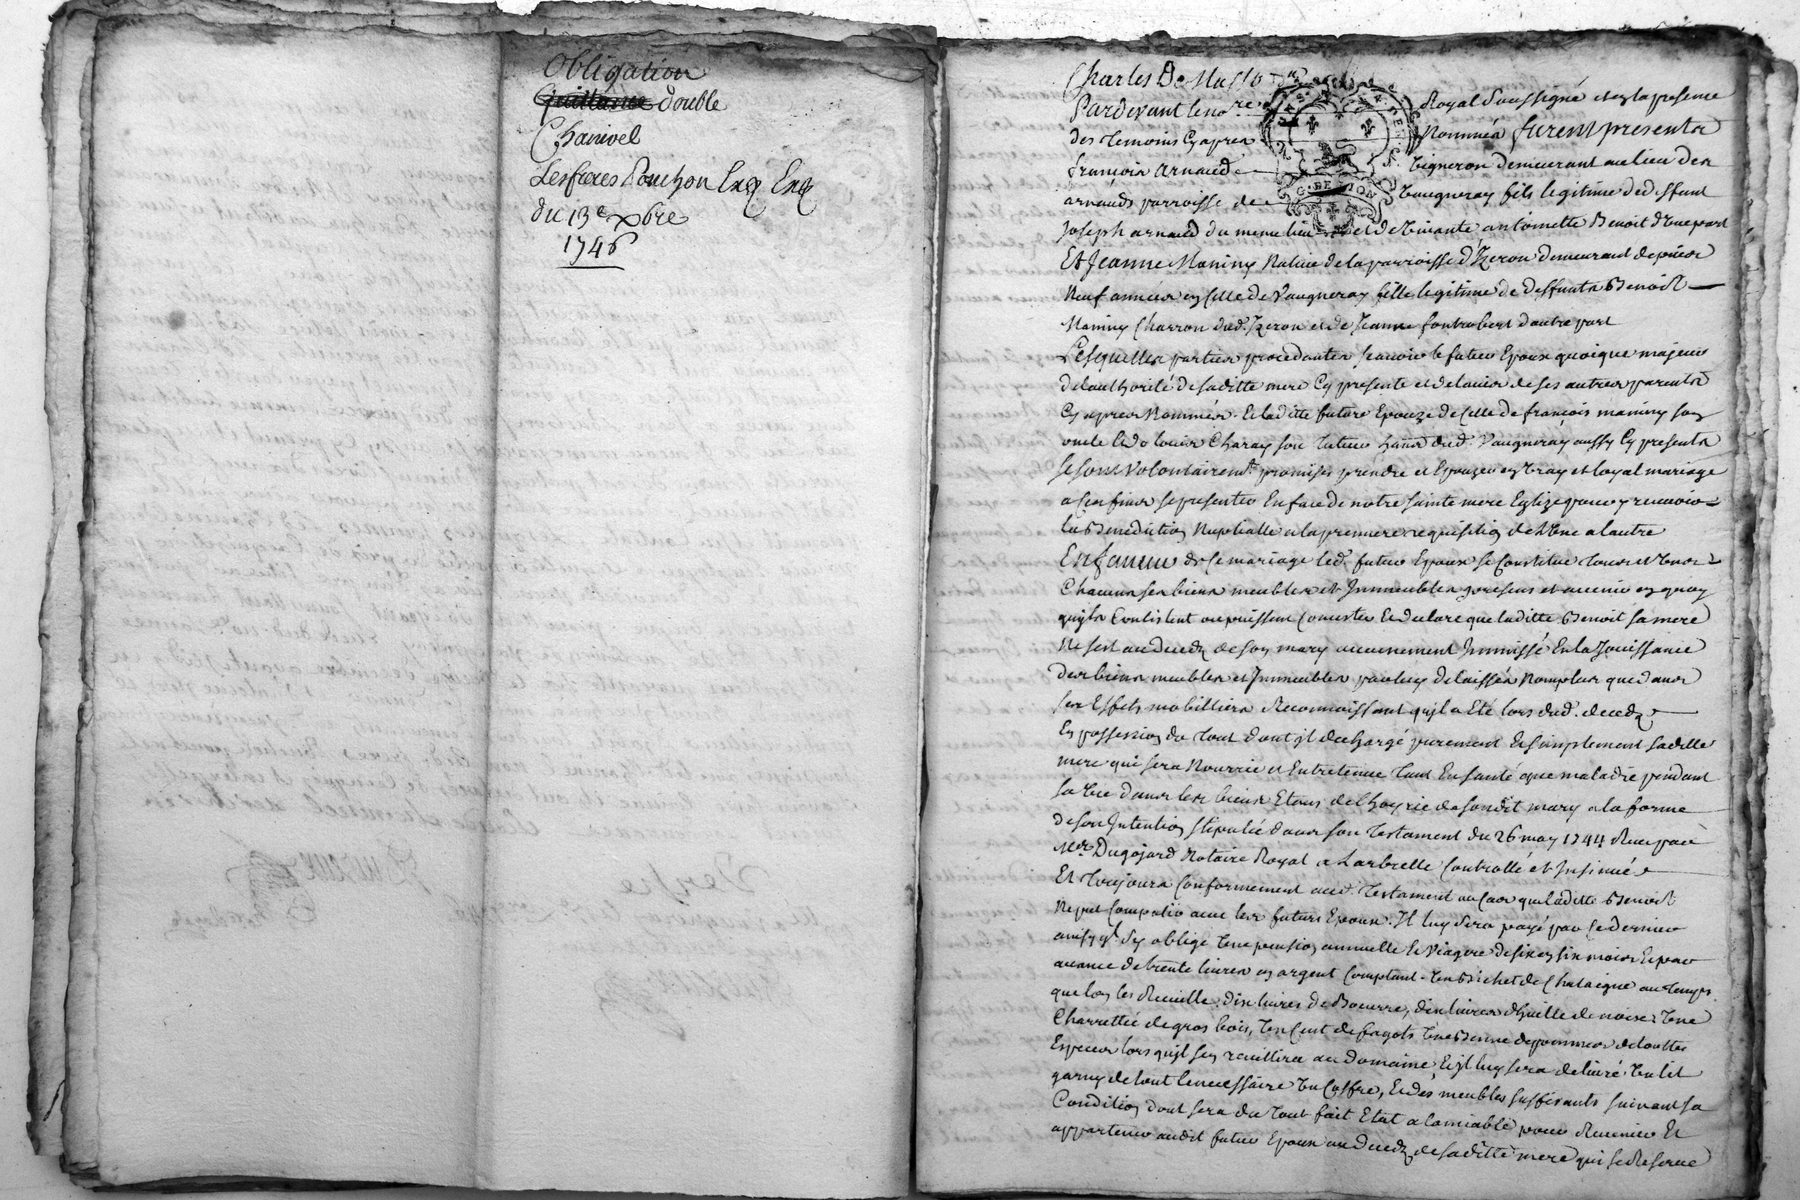 Obligation
double
Chanivel
Les freres Ponchon Exp Exp
du 13e xbre
1746
Charles De Masso
Pardevant le nore Royal Soussigné et en la presence
des temoins Cy apres Nommés furent presents
françois arnaud vigneron demeurant au lieu des
arnauds parroisse de Vaugneray fils legitime de deffunt
Joseph arnaud du meme lieu et de vivante antoinette Benoit d'une part
Et Jeanne Maniny Native de la parroisse d'Izeron demeurant depuis
Neuf années en Celle de Vaugneray fille legitime de deffunts Benoist
Maniny Charron dud. Izeron et de Jeanne fontrobert d'autre part
Lesquelles parties procedantes scavoir le futur Epoux quoique majeur
de l'authorité de saditte mere Cy présente et de l'avis de ses autres parents
Cy apres Nommés. Et laditte future Epouze de Celle de françois maniny son
oncle et de louis Charay son tuteur dud. Vaugneray aussy Cy presents
se sont volontairemt. promises prendre et Epouzer en vray et loyal mariage
a ces fins se presenter En face de notre sainte mere Eglize pour y recevoir
la Benediction Nuptialle a la premiere requisition de l'une a l'autre
En faveur de Ce mariage led. futur Epoux se Constitue tous et uns
Chacuns ses biens meubles et Immeubles presens et avenir en quoy
qu'jls Consistent ou puissent Consister Et declare que laditte Benoit sa mere
Ne s'est au deceds de son mary aucunement Immissé En la Jouissance
des biens meubles et Immeubles par luy delaissés Non plus que dans
ses Effets mobilliers Reconnoissant qu'jl a Eté lors dud. deceds
En possession du tout dont jl decharge purement Et simplement saditte
mere qui sera Nourrie et Entretenue tant En santé que maladie pendant
sa vie dans les biens Etans de l'hoyrie de sondit mary a la forme
de son Intention stipulée dans son testament du 26 may 1744 Reçu par
Mer. Dugojard Notaire Royal a Larbrelle Controllé et Insinué
Et toujours Conformement aud. testament au Cas que laditte Benoit
Ne put Compatir avec les futurs Epoux. Il luy sera payé par Ce dernier
ainsy qu'il s'y oblige une pension annuelle et viagere de six en six mois Et par
avance de trente livres en argent Comptant. un Bichet de Chataigne au temps
que l'on les Recueille, dix livres de Beurre, dix livres d'huille de noix une
Charrettée de gros bois, un Cent de fagots une Benne de pommes de touttes
Especes lors qu'jl s'en recuillira au domaine, Et jl luy sera delivré un lit
garny de tout le necessaire un Coffre, Et des meubles suffisants suivant sa
Condition dont sera du tout fait Etat a l'amiable pour Revenir Et
appartenir audit futur Epoux au deceds de saditte mere qui se Reserve